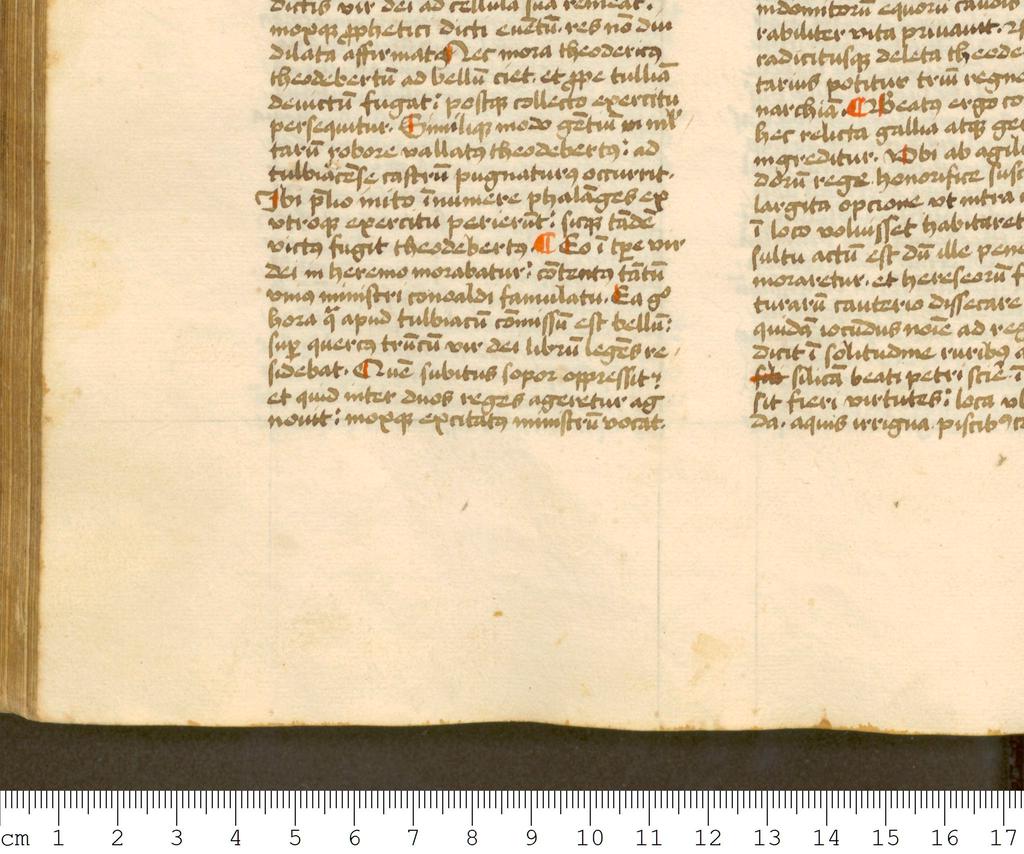 dictis vir dei ad cellula sua remeat.
moxqꝫ ꝓphetici dicti euētū. res nō diu
dilata affirmat. Nec mora theodericꝰ
theodebertū ad bellū ciet. et ꝓpe tulliā
deuictū fugat: postqꝫ collecto exercitu
persequitur. Similiqꝫ modo gētiū in mil'
tarū robore vallatꝰ theodebertꝰ: ad
tulbiacēse castrū pugnaturꝰ occurrit.
Ibi p̄lio inito īnumere phalāges ex
vtroqꝫ exercitu perierūt: sicqꝫ tādē
victꝰ fugit theodebertꝰ. ¶ Eo ī tp̄e vir
dei in heremo morabatur: cōtentꝰ tātū
vniꝰ ministri conoaldi famulatu. Ea gͦ
hora qͣ apud tulbiacū cōmissū est bellū:
suꝑ quercꝰ trūcū vir dei librū legēs re
sidebat. Quē subitus sopor oppressit:
et quid inter duos reges ageretur ag
nouit: moxqꝫ excitatꝰ ministrū vocat.
indomitorū equorū caudis
rabiliter vita priuauit.
radicitusqꝫ deleta theode
tarius potitur triū regno
narchiā. ¶ Beatꝰ ergo co
hec relicta gallia atqꝫ ge
ingreditur. Vbi ab agilu
dorū rege honorifice susc
largita opcione vt intra
ī loco voluisset habitaret
sultu actū est dū ille pene
moraretur. et hereseorū f
turarū cauterio dissecare
quidā iocūdus noīe ad reg
dicit ī solitudine ruribꝰ a
silicā beati petri scīe ī
sit fieri virtutes: loca vb
da. aquis irrigua. piscibꝰ
cm 1 2 3 4 5 6 7 8 9 10 11 12 13 14 15 16 17